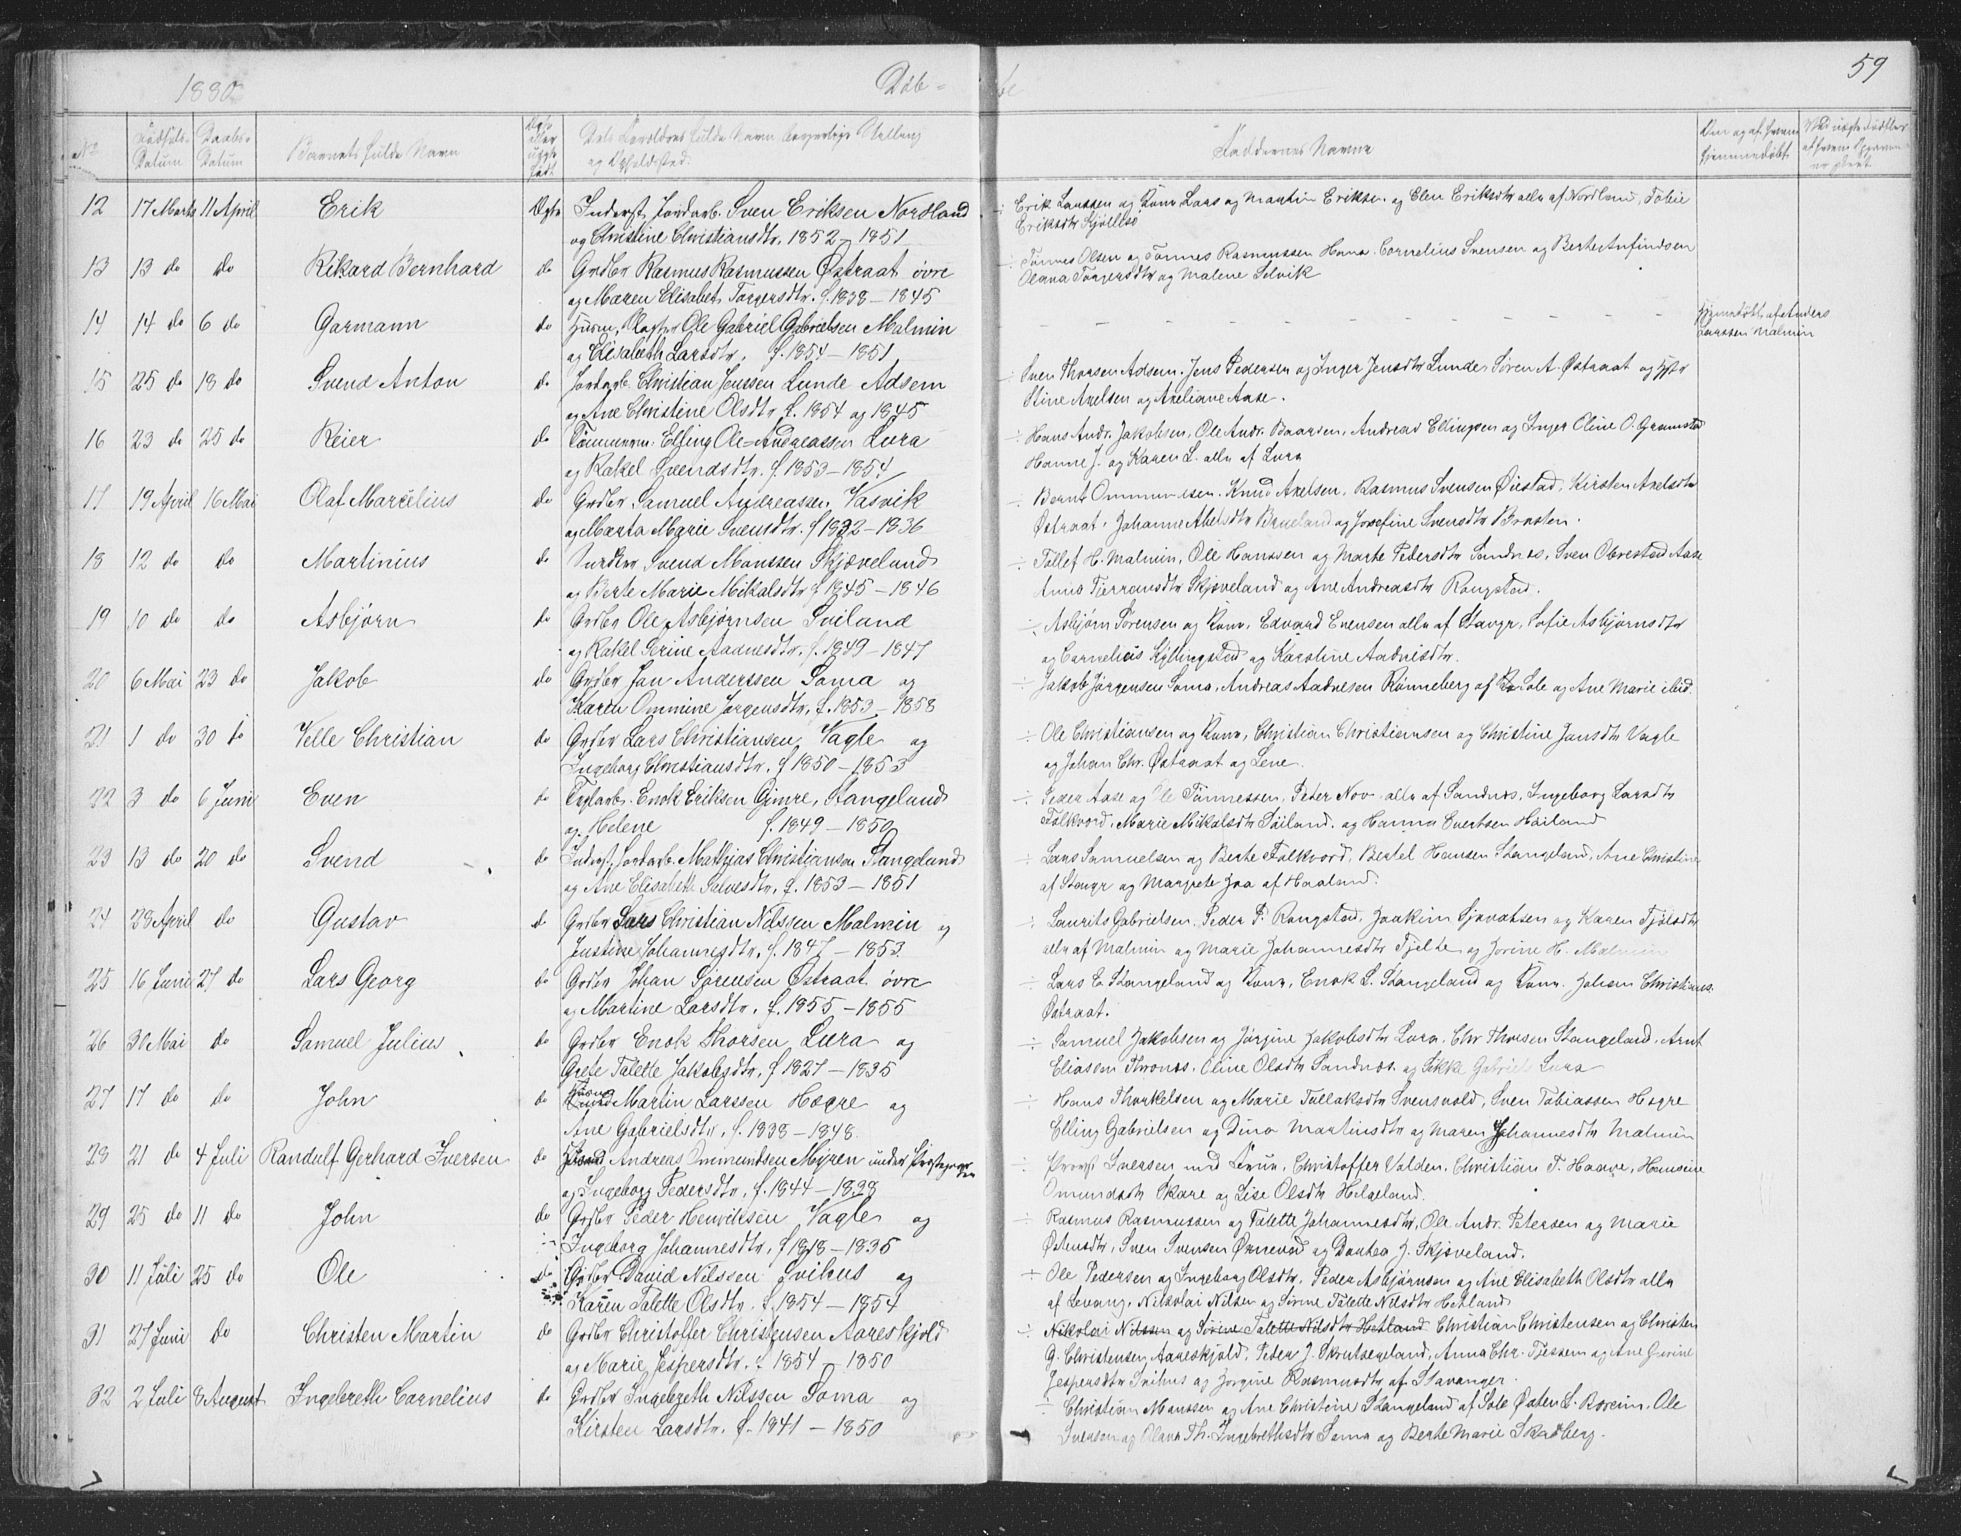 1880 Døb= te 59
No Fødsels-Datum Daabs-Datum Barnets fulde Navn Ægte eller uægte født Dets Forældres fulde Navn borgerlige Stilling og Opholdssted. Faddernes Navne Om og af hvem hjemmedøbt
12 17 Marts 11 April Erik Ægte Inderst, Jordarb. Sven Eriksen Nordland ÷ Erik Larssen og Kone, Lars og Martin Eriksen og Elen Eriksdtr alle af Nordland, Tobie
og Christine Christiansdtr. 1852 – 1851 Eriksdtr
13 13 do do Rikard Bernhard do Grdbr Rasmus Rasmussen Østraat øvre ÷ Tønnes Olsen og Tønnes Rasmussen Hana. Cornelius Svensen og Berte Anfindsen
og Maren Elisabet Torgersdtr. f. 1838 – 1845 Olava Torgersdtr og Malene Selvik
14 14 do 6 do Garmann do Husm, Ole Gabriel Gabrielsen Malmin – – – – – – – – Hjemmedøbt af Anders
og Elisabeth Larsdtr. f. 1854 – 1851 Larssen Malmin
15 25 do 18 do Svend Anton do Jordarb. Christian Jenssen Lunde Adsem ÷ Sven Thorsen Adsem. Jens Pedersen og Inger Jensdtr Lunde, Søren A. Østraat og Hstr
og Ane Christine Olsdtr f. 1854 og 1845 Stine Axelsen og Axeliane Aase.
16 23 do 25 do Reier do Tømmerm. Elling Ole=Andreassen Lura ÷ Hans Andr. Jakobsen, Ole Andr. Baarsen, Andreas Ellingsen og Inger Oline O. Gramstad
og Rakel Svendsdtr. f. 1853 – 1854 Hanne J. og Karen L. alle af Lura
17 19 April 16 Mai Olaf Marcelius do Grdbr Samuel Andreassen Vasvik ÷ Bernt Ommundsen. Knud Axelsen, Rasmus Svensen Øiestad, Kirsten Axelsdtr
og Marta Marie Svensdtr. f 1832 – 1836 Østraat. Johanne Abelsdtr Brueland og Josefine Svensdtr Brasten.
18 12 do do Martinius do Svend Monssen Skjæveland ÷ Tollef H. Malmin, Ole Hanssen og Marte Pedersdtr Sandnes, Sven Obrestad Aase
og Berte Marie Mikalsdtr f 1845 – 1846 Anna Skjæveland og Ane Andreasdtr Rongstad.
19 10 do do Asbjørn do Grdbr Ole Asbjørnsen Sviland ÷ Asbjørn Sørensen og Kone, Edvard Evensen alle af Stavgr, Sofie Asbjørnsdtr
og Rakel Serine Aadnesdtr. f. 1849 – 1847 og Cornelius Kyllingstad og Karoline Aadnesdtr.
20 6 Mai 23 do Jakob do Grdbr Jan Anderssen Soma og ÷ Jakob Jørgensen Soma, Andreas Aadnesen Rønneberg af Sole og Ane Marie ibid.
Karen Ommine Jørgensdtr, f. 1853 – 1858
21 1 do 30 do Velle Christian do Grdbr Lars Christiansen Vagle og ÷ Ole Christiansen og Kone, Christian Christiansen og Christine Jansdtr Vagle
Ingeborg Christiansdtr. f 1850 – 1853 og Johan Chr. Østraat og Lene.
22 3 do 6 Juni Even do Teglarb. Enok Eriksen Gimre, Stangeland ÷ Peder Aase og Ole Tønnessen, Peter Nov alle af Sandnes, Ingeborg Larsdtr
og Helene f. 1849 – 1850 Folkvord, Marie Mikalsdtr Sviland. og Hanna Svertsen Høiland
23 13 do 20 do Svend do Inderst, Jordarb. Mathias Christiansen Stangeland ÷ Lars Samuelsen og Berte Folkvord, Bertel Hansen Stangeland, Ane Christine
og Ane Elisabeth Salvesdtr, f. 1853 – 1851 af Stavgr og Margrete Joa af Haaland.
24 28 April do Gustav do Grdbr Lars Christian Nilssen Malmin og ÷ Laurits Gabrielsen, Peder P. Rongstad, Joakim Sjovatsen og Karen Tjølsdtr
Justine Johannesdtr, f. 1847 – 1853. alle af Malmin og Marie Johannesdtr Tjelte og Jorine H. Malmin
25 16 Juni 27 do Lars Georg do Grdbr Johan Sørensen Østraat øvre ÷ Lars E. Stangeland og Kone, Enok L. Stangeland og Kone. Johan Christians.
og Martine Larsdtr. f. 1855 – 1855 Østraat.
26 30 Mai do Samuel Julius do Grdbr Enok Thorsen Lura og ÷ Samuel Jakobsen og Jørgine Jakobsdtr Lura, Chr Thorsen Stangeland, Arnt
Grete Talette Jakobsdtr. f 1827 – 1835 Eliasen Thronæs. Oline Olsdtr Sandnes. og Sikke Gabriels Lura
27 17 do do John do Husmd Martin Larssen Hogre og ÷ Hans Thorkelsen og Marie Tollaksdtr Svensvold, Sven Tobiassen Hogre
Ane Gabrielsdtr, f. 1838 – 1848. Elling Gabrielsen og Dina Martinsdtr og Maren Johannesdtr Malmin
28 21 do 4 Juli Randulf Gerhard Iversen do Husmd Andreas Ommundsen Myren under Prestegaarden ÷ Provst Iversen med Frue, Christoffer Valden, Christian T. Haave, Hansine
og Ingeborg Pedersdtr, f. 1844 – 1838 Omundsdtr Skare og Lise Olsdtr Helgeland.
29 25 do 11 do John do Grdbr Peder Henriksen Vagle og ÷ Rasmus Rasmussen og Talette Johannesdtr, Ole Andr. Petersen og Marie
Ingeborg Johannesdtr, f 1818 – 1835 Østensdtr, Sven Svensen Ørnevad og Dorthea J. Skjæveland.
30 11 Juli 25 do Ole do Grdbr David Nilssen Svihus og ÷ Ole Pedersen og Ingeborg Olsdtr, Peder Asbjørnsen og Ane Elisabeth Olsdtr alle
Karen Talette Olsdtr. f. 1854 – 1854 af Levang, Nikolai Nilsen og Sørine Talette Nilsdtr Hetland
31 27 Juni do Christen Martin do Grdbr Christoffer Christensen Aareskjold ÷ Nikolai Nilssen og Sørine Talette Nilsdtr Hetland Christian Christensen og Christen
og Marie Jespersdtr. f. 1854 – 1850 G. Christensen Aareskjold, Peder J. Skrutsegeland, Anna Chr. Tjessem og Ane Gurine
Jespersdtr Svihus og Jørgine Rasmusdtr af Stavanger.
32 2 Juli 8 August Ingebreth Cornelius do Grdbr Ingebreth Nilssen Soma og ÷ Christian Monssen og Ane Christine Stangeland af Sole Østen L. Boreim, Ole
Kirsten Larsdtr. f. 1841 – 1850 Svensen og Olava Th. Ingebrethsdtr Soma og Berte Marie Skadberg.